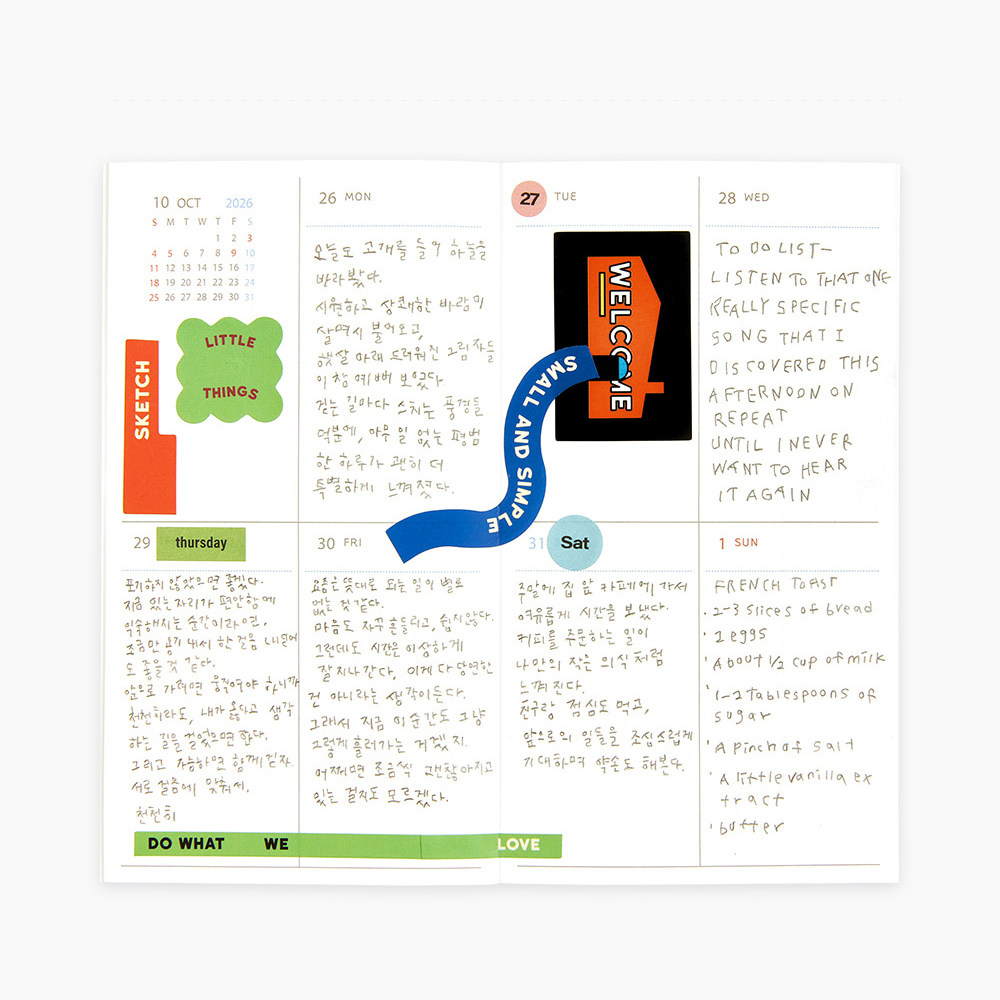 10 OCT 2026
S M T W T F S
1 2 3
4 5 6 7 8 9 10
11 12 13 14 15 16 17
18 19 20 21 22 23 24
25 26 27 28 29 30 31
LITTLE
THINGS
SKETCH
26 MON
오늘도 고개를 들어 하늘을
바라봤다.
시원하고 상쾌한 바람이
살며시 불어오고,
햇살 아래 드리워진 그림자들
이 참 예뻐 보였다
걷는 길마다 스치는 풍경들
덕분에, 아무 일 없는 평범
한 하루가 괜히 더
특별하게 느껴졌다.
27 TUE
WELCOME
SMALL AND SIMPLE
28 WED
TO DO LIST—
LISTEN TO THAT ONE
REALLY SPECIFIC
SONG THAT I
DISCOVERED THIS
AFTERNOON ON
REPEAT
UNTIL I NEVER
WANT TO HEAR
IT AGAIN
29 thursday
포기하지 않았으면 좋겠다.
지금 있는 자리가 편안함에
익숙해지는 순간이라면,
조금만 용기 내서 한 걸음 내딛어
도 좋을 것 같다.
앞으로 가려면 움직여야 하니까
천천히라도, 내가 옳다고 생각
하는 길을 걸었으면 한다.
그리고 가능하면 함께 걷자.
서로 걸음에 맞춰서.
천천히
30 FRI
요즘은 뜻대로 되는 일이 별로
없는 것 같다.
마음도 자꾸 흔들리고, 쉽지 않다.
그런데도 시간은 이상하게
잘 지나간다, 이게 다 당연한
건 아니라는 생각이 든다.
그래서 지금 이 순간도 그냥
그렇게 흘러가는 거겠지.
어쩌면 조금씩 괜찮아지고
있는 걸지도 모르겠다.
31 Sat
주말에 집 앞 카페에 가서
여유롭게 시간을 보냈다.
커피를 주문하는 일이
나만의 작은 의식처럼
느껴진다.
친구랑 점심도 먹고,
앞으로의 일들을 조심스럽게
기대하며 약속도 해본다.
1 SUN
FRENCH TOAST
· 2-3 slices of bread
· 2 eggs
· About 1/2 cup of milk
· 1-2 tablespoons of
sugar
· A pinch of salt
· A little vanilla ex
tract
· butter
DO WHAT WE LOVE